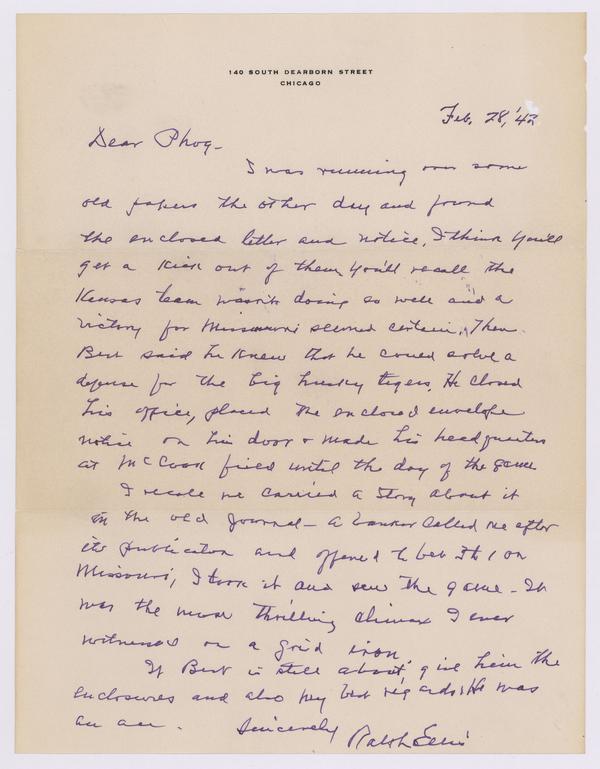 140 SOUTH DEARBORN STREET
CHICAGO
Feb. 28, '42
Dear Phog -
I was running over some
old papers the other day and found
the enclosed letter and notice, I think you'll
get a kick out of them, you'll recall the
Kansas team wasn't doing so well and a
victory for Missouri seemed certain. Then
Bert said he knew that he could solve a
defense for the big husky tigers. He closed
his office, placed the enclosed envelope
notice on his door & made his headquarters
at McCook field until the day of the game
I recall we carried a story about it
in the old Journal - A banker called me after
its publication and offered to bet 5 to 1 on
Missouri, I took it and saw the game - It
was the most thrilling climax I ever
witnessed on a grid iron.
If Bert is still about, give him the
enclosures and also my best regards. He was
an ace.
Sincerely Ralph Ellis